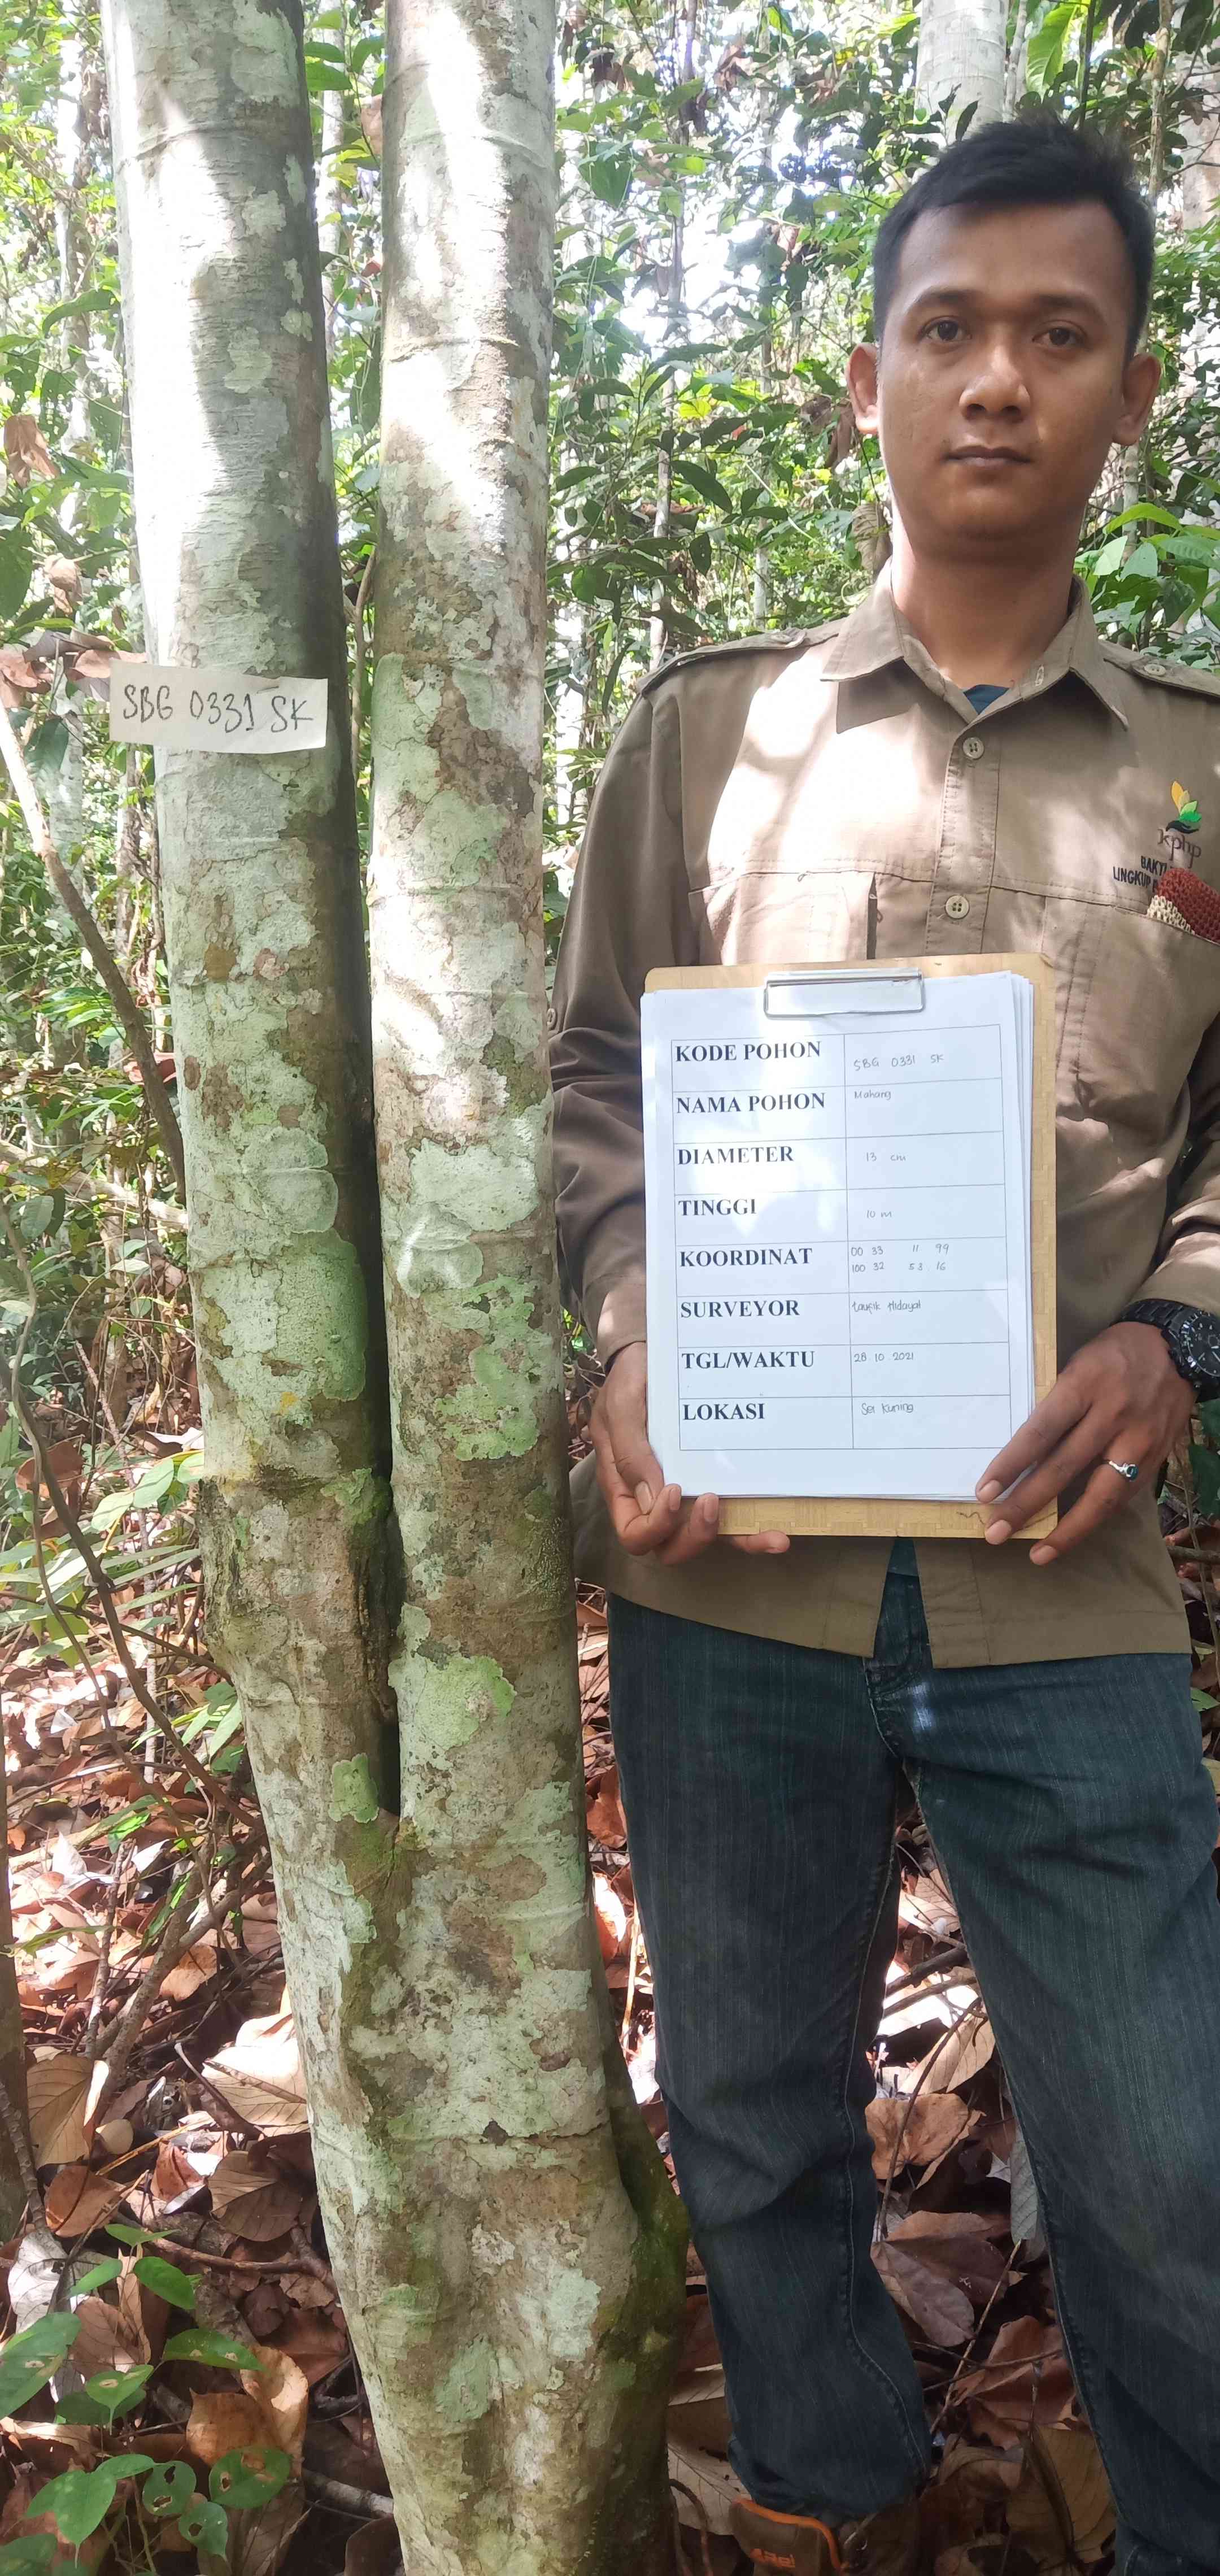 SBG 0331 SK
kphp
KODE POHON SBG 0331 SK
NAMA POHON Mahang
DIAMETER 13 cm
TINGGI 10 m
KOORDINAT 00 33 11 99
100 32 53 16
SURVEYOR taufik Hidayat
TGL/WAKTU 28 10 2021
LOKASI Sei Kuning